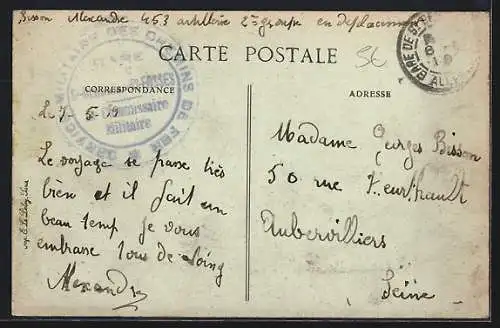 Bisson Alexandre 453 artillerie 2e groupe en déplacement
CARTE POSTALE
SERVICE MILITAIRE DES CHEMINS DE FER
Commissaire
Militaire
GARE DE
CORRESPONDANCE
ADRESSE
Le 7-5-19
Le voyage se passe très
bien et il fait un
beau temp je vous
embrasse tous de loing
Alexandre
Madame Georges Bisson
50 rue Heurthault
Aubervilliers
Seine